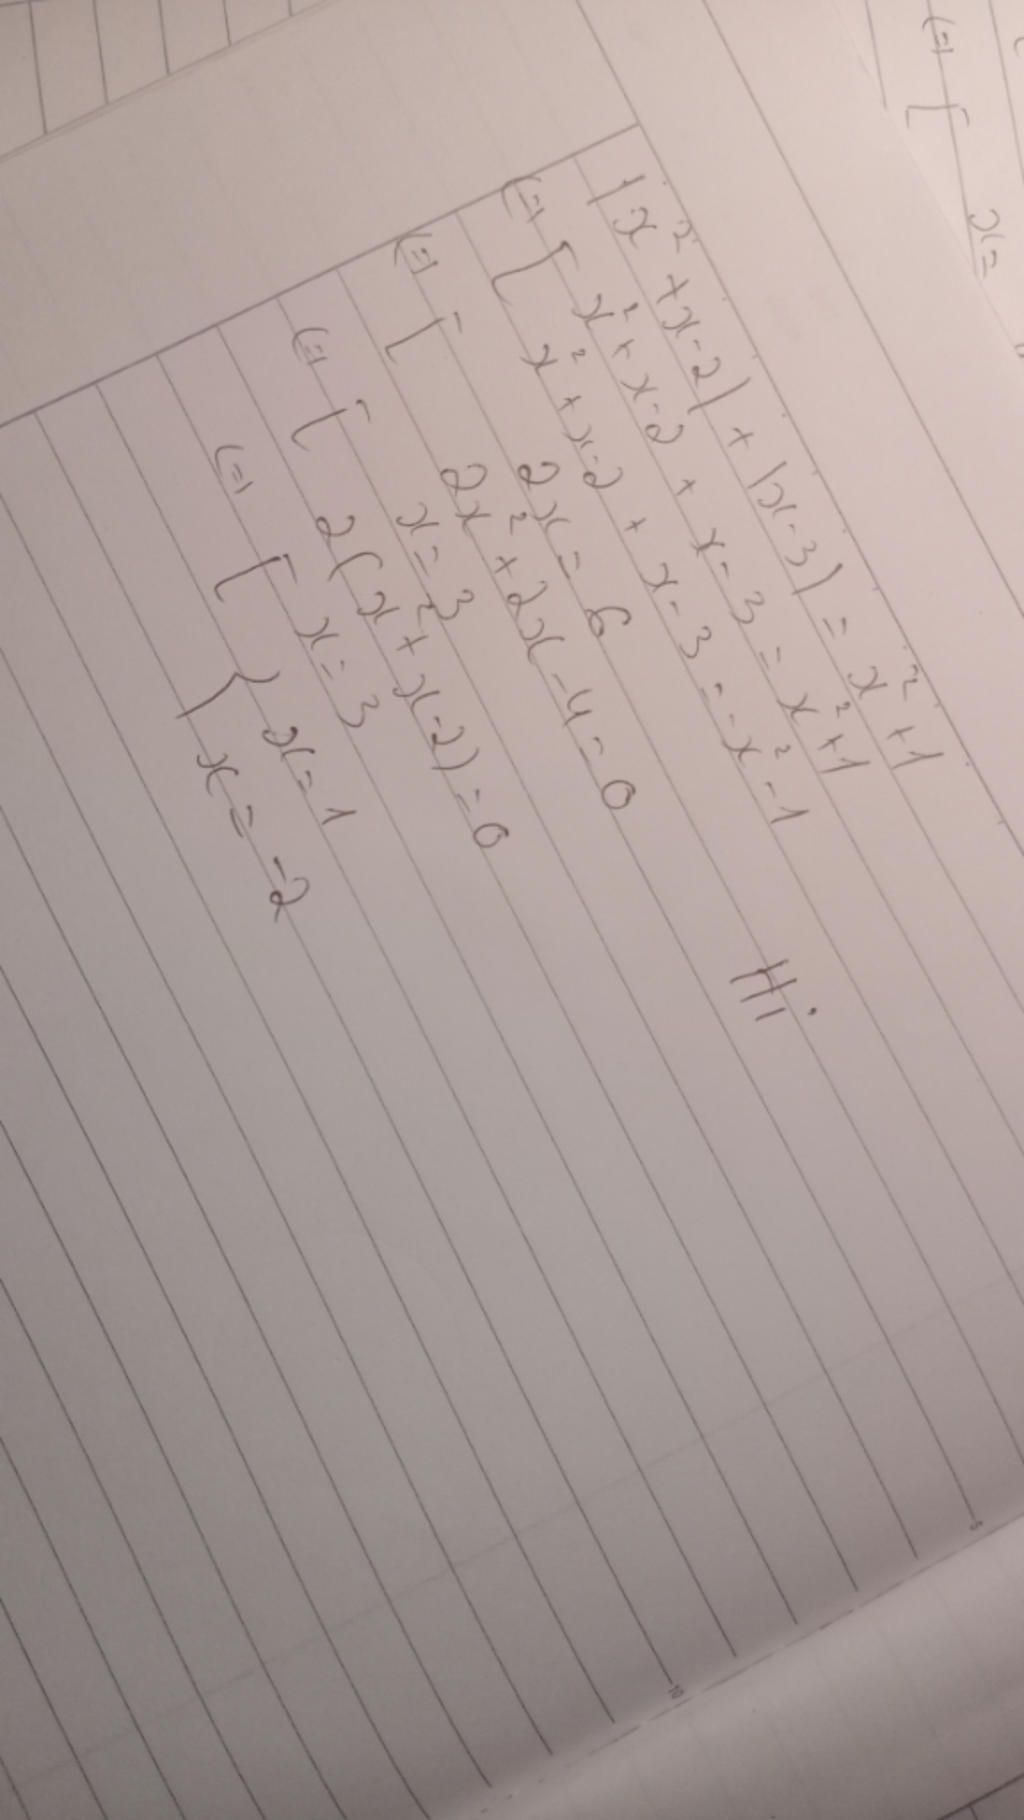 |x² + x - 2| + |x - 3| = x² + 1
(=) [ x² + x - 2 + x - 3 = x² + 1
x² + x - 2 + x - 3 = -x² - 1
(=) [ 2x = 6
2x² + 2x - 4 = 0
(=) [ x = 3
2(x² + x - 2) = 0
(=) [ x = 3
{ x = 1
x = -2
Hi
(=) [ x =
5
10